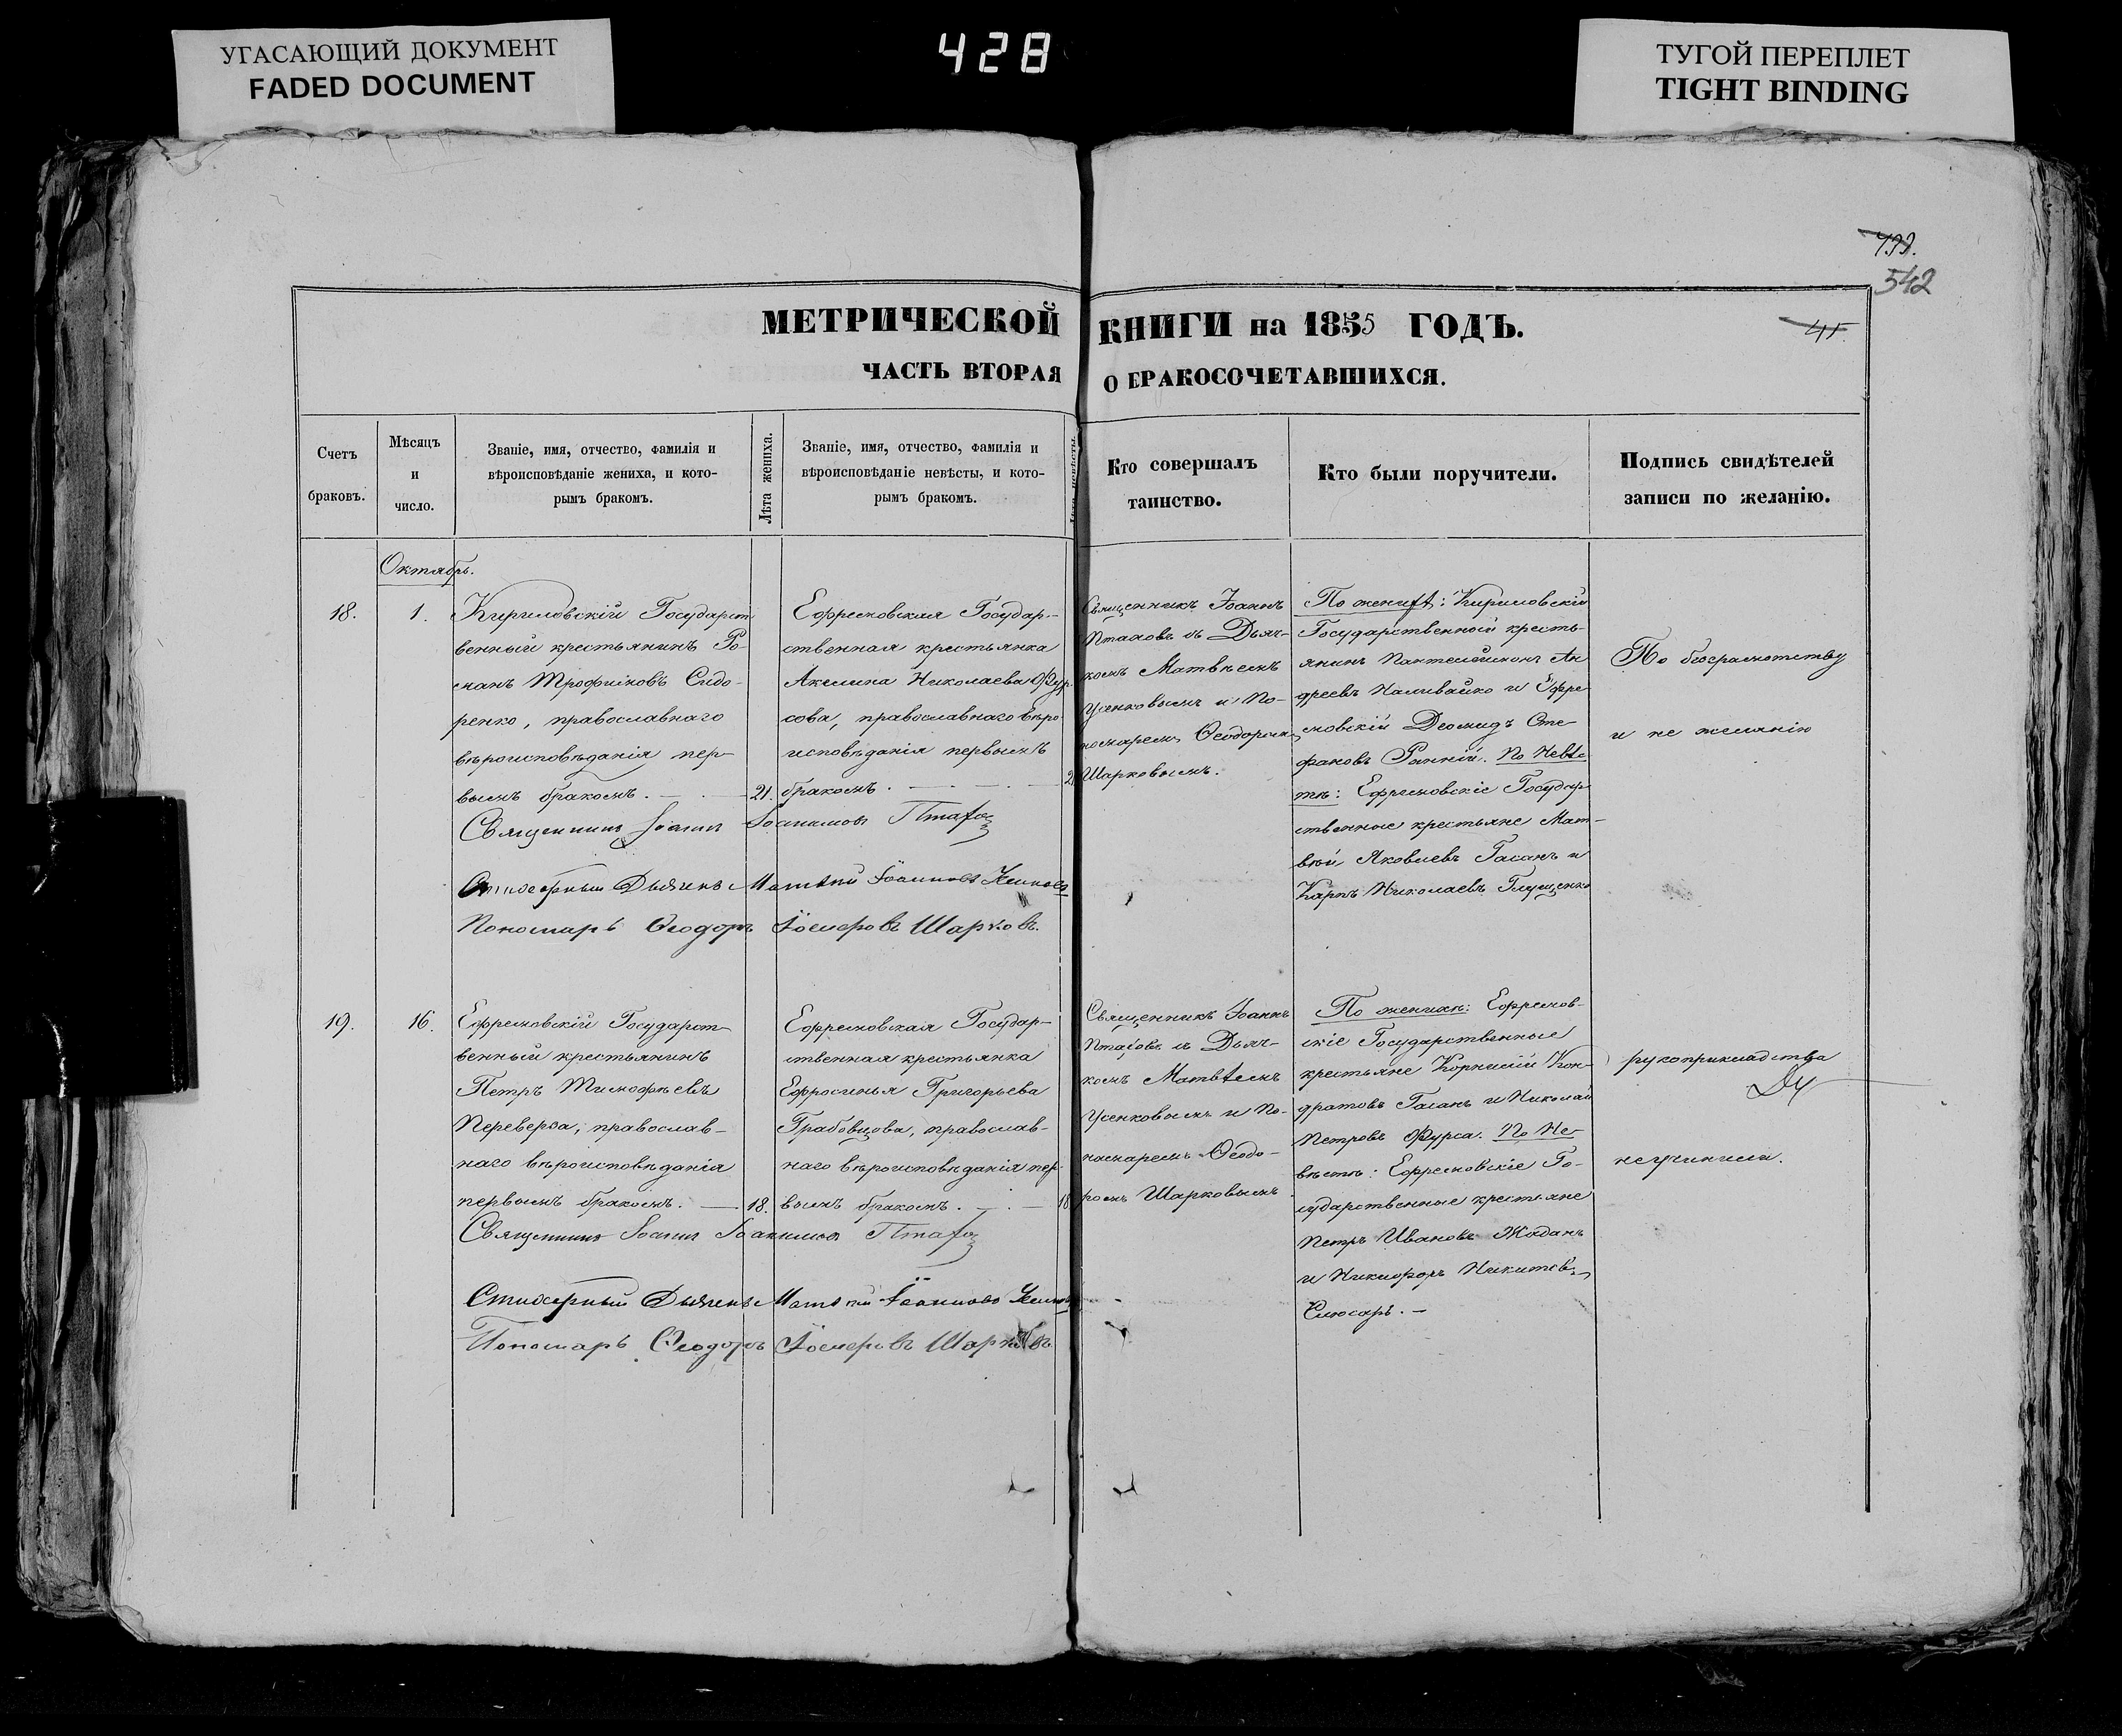 УГАСАЮЩИЙ ДОКУМЕНТ
FADED DOCUMENT
428
ТУГОЙ ПЕРЕПЛЕТ
TIGHT BINDING
542
МЕТРИЧЕСКОЙ КНИГИ на 1855 ГОДЪ.
ЧАСТЬ ВТОРАЯ О БРАКОСОЧЕТАВШИХСЯ.
Счетъ
браковъ.
Мѣсяцъ
и
число.
Званіе, имя, отчество, фамилія и
вѣроисповѣданіе жениха, и кото-
рымъ бракомъ.
Лѣта жениха.
Званіе, имя, отчество, фамилія и
вѣроисповѣданіе невѣсты, и кото-
рымъ бракомъ.
Лѣта невѣсты.
Кто совершалъ
таинство.
Кто были поручители.
Подпись свидѣтелей
записи по желанію.
Октябрь.
18.
1.
Кириловскій Государст
венный крестьянинъ Ро-
манъ Трофимовъ Сидо-
ренко, православнаго
вѣроисповѣданія пер-
вымъ бракомъ.
21.
Ефремовская Государ-
ственная крестьянка
Акилина Николаева Фур-
сова, православнаго вѣро
исповѣданія первымъ
бракомъ.
Священникъ Іоаннъ
Птаховъ съ Дьяч-
комъ Матвѣемъ
Усенковымъ и По-
номаремъ Ѳеодоромъ
Шарковымъ.
По женихѣ: Кириловскій
Государственный кресть-
янинъ Пантелеймонъ Ан
дреевъ Наливайко и Ефре
мовскій Деомидъ Сте
фановъ Ранній. По Невѣс
тѣ: Ефремовскіе Государ
ственные крестьяне Мат-
вѣй Яковлевъ Гасанъ и
Карпъ Николаевъ Глущенко
По безграмотству
и не желанію
Священникъ Іоаннъ Іоакимовъ Птаховъ
Стихарный Дьячекъ Матвѣй Іоанновъ Усенковъ
Пономарь Ѳеодоръ Шарковъ.
19.
16.
Ефремовскій Государст-
венный крестьянинъ
Петръ Тимофѣевъ
Переверза, православ-
наго вѣроисповѣданія
первымъ бракомъ.
18.
Ефремовская Государ-
ственная крестьянка
Ефросинья Григорьева
Грабовцова, православ-
наго вѣроисповѣданія пер-
вымъ бракомъ.
18
Священникъ Іоаннъ
Птаховъ съ Дьяч-
комъ Матвѣемъ
Усенковымъ и По-
номаремъ Ѳеодо-
ромъ Шарковымъ
По женихѣ: Ефремов-
скіе Государственные
крестьяне Корнилій Кон-
дратовъ Гасанъ и Николай
Петровъ Фурса. По Не-
вѣстѣ: Ефремовскіе Го-
сударственные крестьяне
Петръ Ивановъ Жаданъ
и Никифоръ Никитовъ
Слюсарь.
рукоприкладства
не учинили.
Священникъ Іоаннъ Іоакимовъ Птаховъ
Стихарный Дьячекъ Матвѣй Іоанновъ
Пономарь Ѳеодоръ Шарковъ